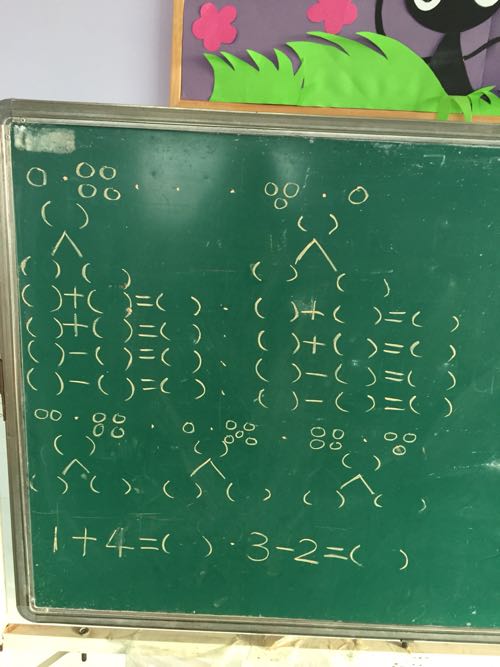 ( ) ( )
( ) ( ) ( ) ( )
( )+( )=( ) ( )+( )=( )
( )+( )=( ) ( )+( )=( )
( )-( )=( ) ( )-( )=( )
( )-( )=( ) ( )-( )=( )
( ) ( ) ( )
( ) ( ) ( ) ( ) ( ) ( )
1+4=( ) · 3-2=( )